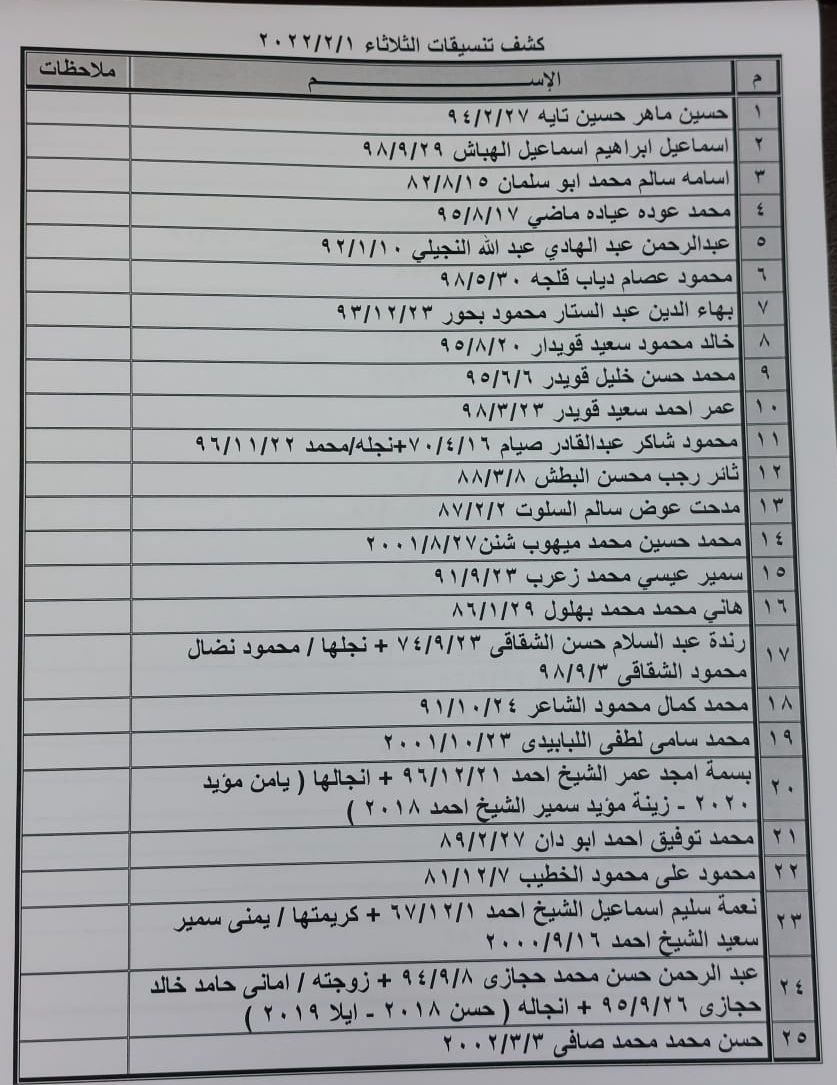 كشف تنسيقات الثلاثاء ٢٠٢٢/٢/١
م الإســـــــم ملاحظات
١ حسين ماهر حسين تايه ٩٤/٢/٢٧
٢ اسماعيل ابراهيم اسماعيل الهباش ٩٨/٩/٢٩
٣ اسامه سالم محمد ابو سلمان ٨٢/٨/١٥
٤ محمد عوده عياده ماضي ٩٥/٨/١٧
٥ عبدالرحمن عبد الهادي عبد الله النجيلي ٩٢/١/١٠
٦ محمود عصام دياب قلجه ٩٨/٥/٣٠
٧ بهاء الدين عبد الستار محمود بحور ٩٣/١٢/٢٣
٨ خالد محمود سعيد قويدار ٩٥/٨/٢٠
٩ محمد حسن خليل قويدر ٩٥/٦/٦
١٠ عمر احمد سعيد قويدر ٩٨/٣/٢٣
١١ محمود شاكر عبدالقادر صيام ٧٠/٤/١٦+نجله/محمد ٩٦/١١/٢٢
١٢ ثائر رجب محسن البطش ٨٨/٣/٨
١٣ مدحت عوض سالم السلوت ٨٧/٢/٢
١٤ محمد حسين محمد ميهوب شنن٢٠٠١/٨/٢٧
١٥ سمير عيسي محمد زعرب ٩١/٩/٢٣
١٦ هاني محمد محمد بهلول ٨٦/١/٢٩
١٧ رندة عبد السلام حسن الشقاقى ٧٤/٩/٢٣ + نجلها / محمود نضال
محمود الشقاقى ٩٨/٩/٣
١٨ محمد كمال محمود الشاعر ٩١/١٠/٢٤
١٩ محمد سامى لطفى اللبابيدى ٢٠٠١/١٠/٢٣
٢٠ بسمة امجد عمر الشيخ احمد ٩٦/١٢/٢١ + انجالها ( يامن مؤيد
٢٠٢٠ - زينة مؤيد سمير الشيخ احمد ٢٠١٨ )
٢١ محمد توفيق احمد ابو دان ٨٩/٢/٢٧
٢٢ محمود على محمود الخطيب ٨١/١٢/٧
٢٣ نعمة سليم اسماعيل الشيخ احمد ٦٧/١٢/١ + كريمتها / يمنى سمير
سعيد الشيخ احمد ٢٠٠٠/٩/١٦
٢٤ عبد الرحمن حسن محمد حجازى ٩٤/٩/٨ + زوجته / امانى حامد خالد
حجازى ٩٥/٩/٢٦ + انجاله ( حسن ٢٠١٨ - ايلا ٢٠١٩ )
٢٥ حسن محمد محمد صافى ٢٠٠٢/٣/٣